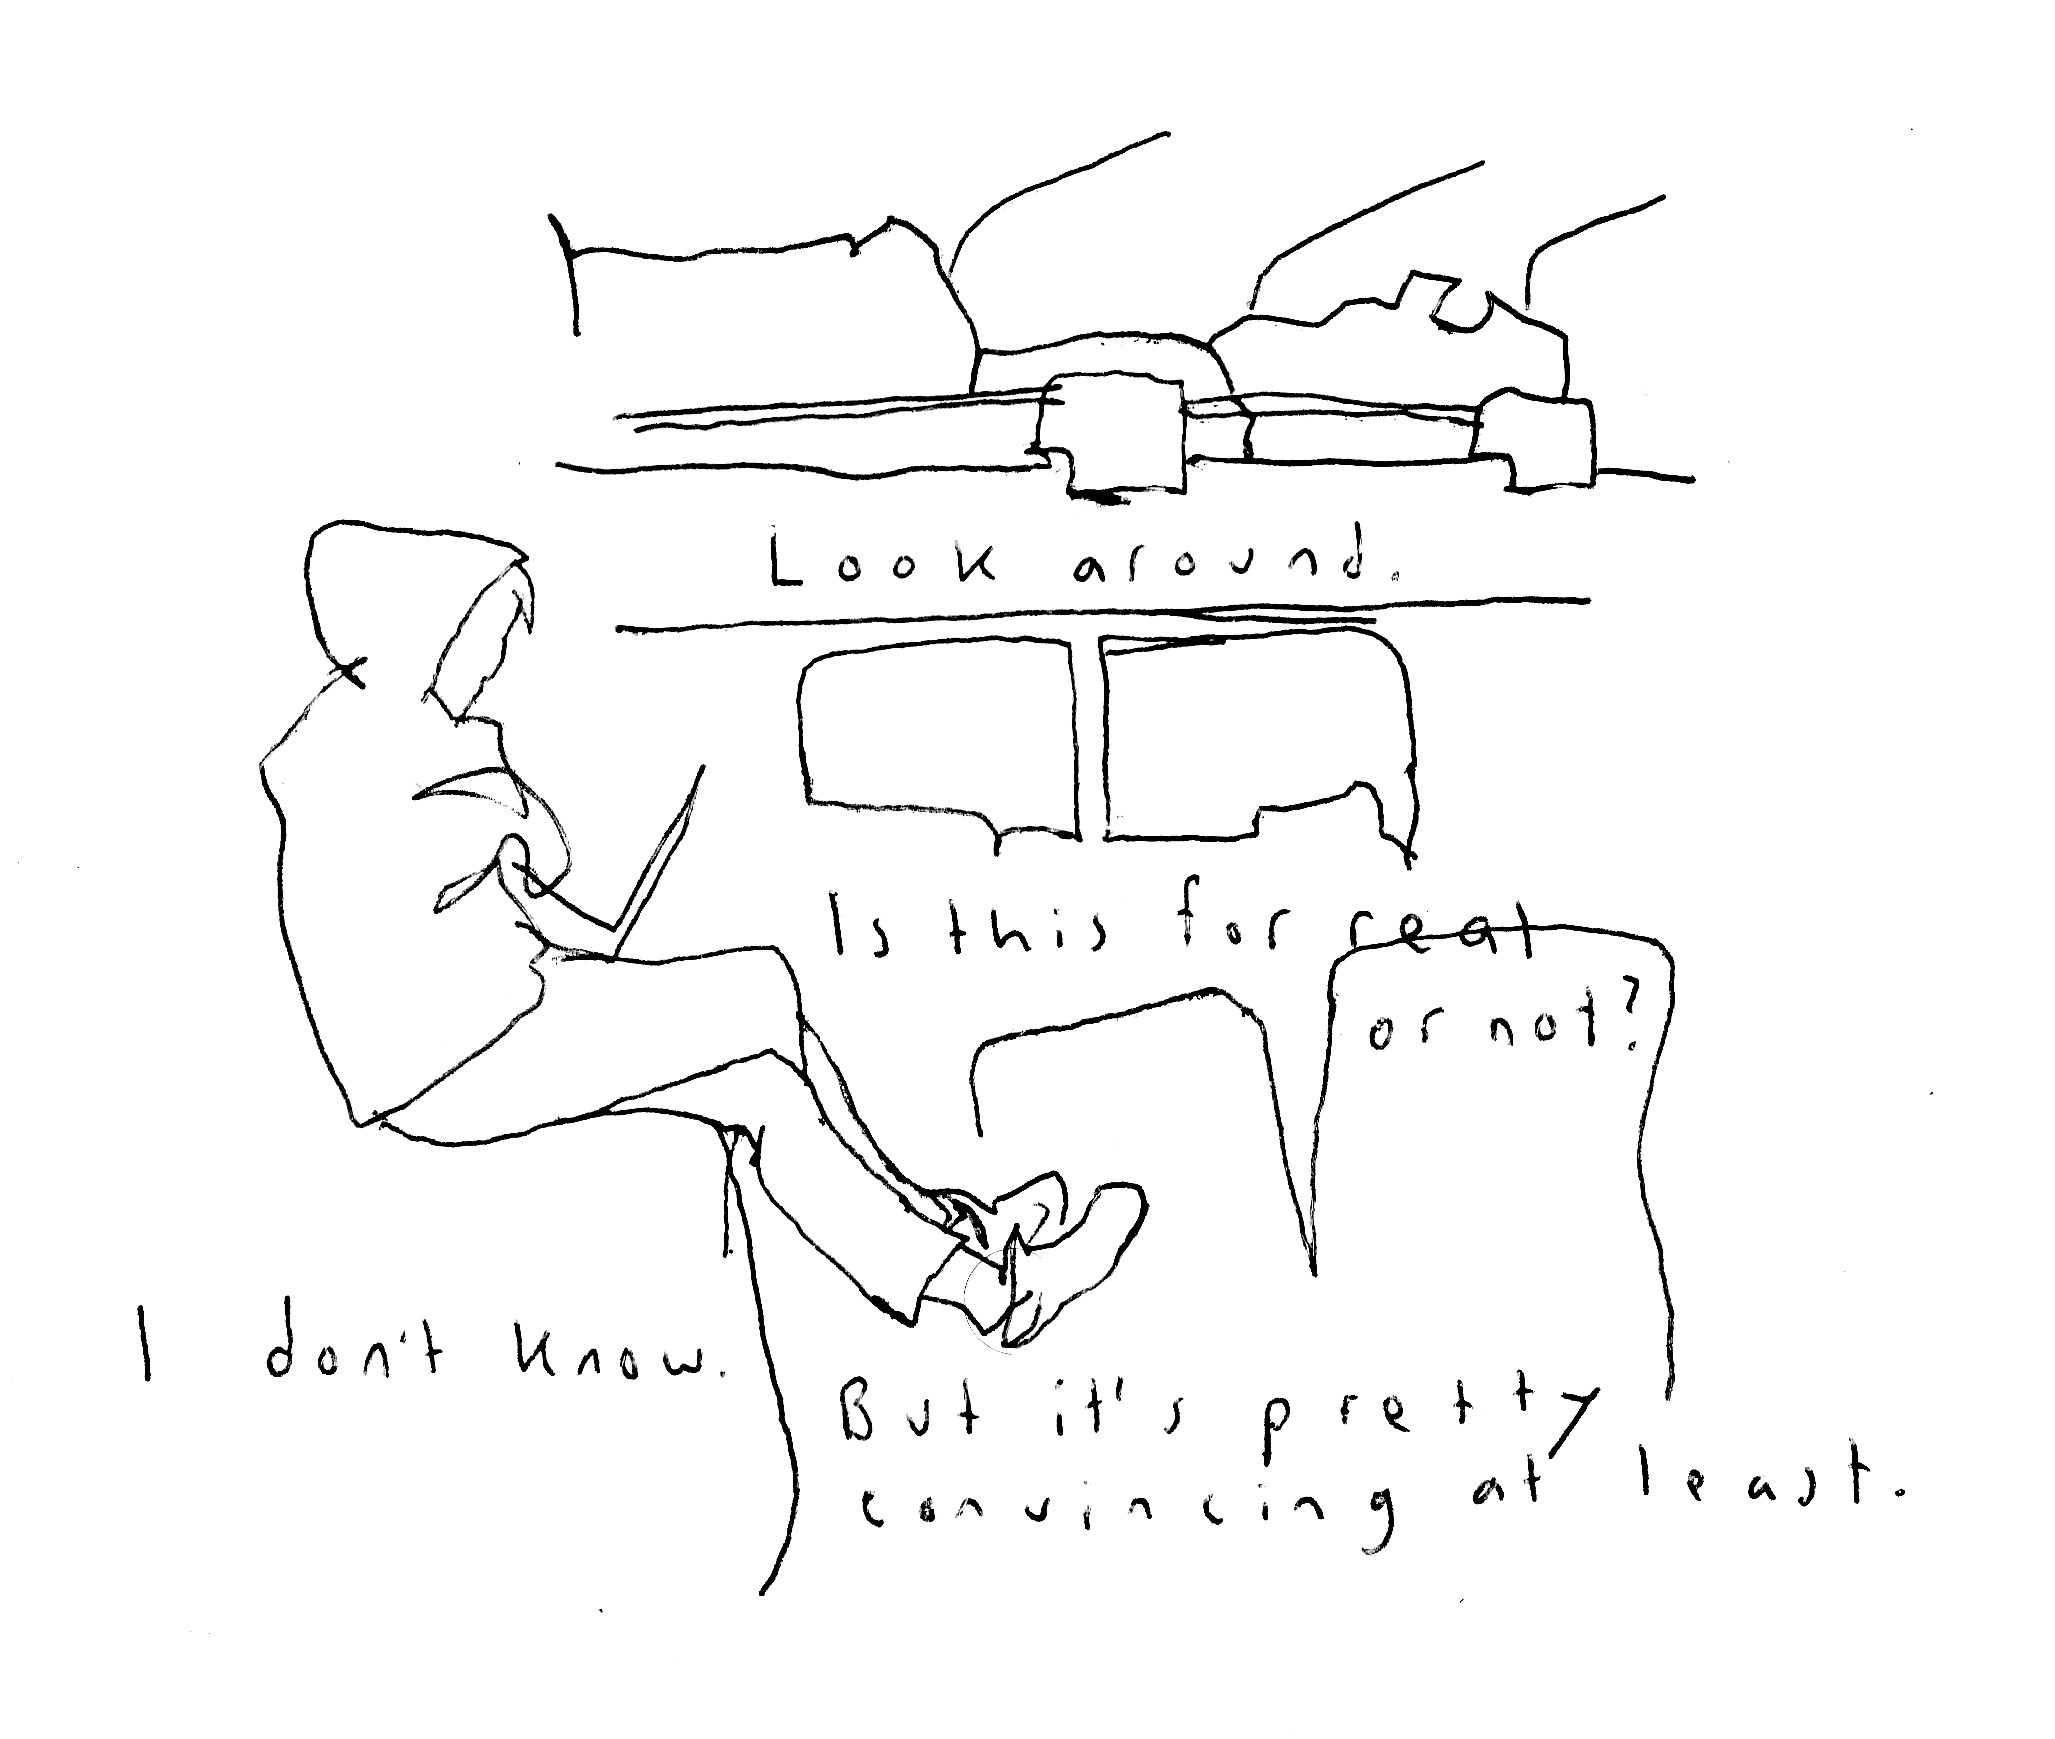 Look around.
Is this for real
or not?
I don't know.
But it's pretty
convincing at least.